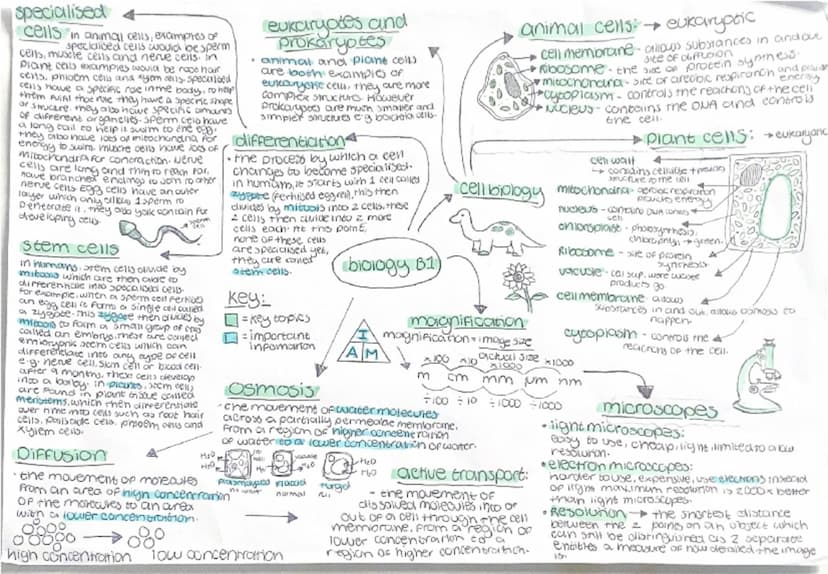 specialised
cells
in animal cells, examples of
specialised cells would be sperm
cells, muscle cells and nerve cells. in
plant cells examples would be root hair
cells, phloem cells and xylem cells. specialised
cells have a specific role in the body, to help
them fulfil this role they have a specific shape
or structure. they also have specific amounts
of different organelles. sperm cells have
a long tail to help it swim to the egg,
they also have lots of mitochondria for
energy to swim. muscle cells have lots of
mitochondria for contraction. nerve
cells are long and thin to reach far,
have branched endings to join to other
nerve cells. egg cells have an outer
layer which only allows 1 sperm to
penetrate it, they also yolk contain for
developing cells.
stem cells
in humans, stem cells divide by
mitosis which are then able to
differentiate into specialised cells.
for example, when a sperm cell fertilises
an egg cell is forms a single cell called
a zygote. This zygote then divides by
mitosis to form a small group of cells
called an embryo, these are called
embryonic stem cells which can
differentiate into any type of cell
e.g. nerve cell, skin cell or blood cell.
after 9 months, these cells develop
into a baby. in plants, stem cells
are found in plant tissue called
meristems, which then differentiate
over time into cells such as root hair
cells, palisade cells, phloem cells and
xylem cells.
Diffusion
- the movement of molecules
from an area of high concentration
of the molecules to an area
with a lower concentration.
high concentration
low concentration
eukaryotes and
prokaryotes
• animal and plant cells
are both examples of
eukaryotic cells, they are more
complex structures. However
prokaryotes are much smaller and
simpler structures e.g bacteria cells.
differentiation
• the process by which a cell
changes to become specialised.
in humans, it starts with 1 cell called
zygote (fertilised egg), this then
divides by mitosis into 2 cells, these
2 cells then divide into 2 more
cells each. At this point,
none of these cells
are specialised yes,
they are called
stem cells.
cell biology
biology B1
key:
= key topics
= important
information
I
A M
magnification
magnification = image size
actual size
×100 ×10 ×1000 ×1000
m cm mm µm nm
÷100 ÷10 ÷1000 ÷1000
osmosis
- the movement of water molecules
across a partially permeable membrane,
from a region of higher concentration
of water to a lower concentration of water.
H2O
H2O
plasmolysed
flaccid
normal
turgid
H2O
H2O
active transport:
- the movement of
dissolved molecules into or
out of a cell through the cell
membrane, from a region of
lower concentration to a
region of higher concentration.
animal cells: → eukaryotic
cell membrane - allows substances in and out
site of diffusion
Ribosome - the site of protein synthesis.
mitochondria - site of aerobic respiration and provides
energy
cytoplasm - controls the reactions of the cell
nucleus - contains the DNA and controls
the cell.
plant cells: → eukaryotic
cell wall
→ contains cellulose + provides
structure to the cell
mitochondria - aerobic respiration
provides energy
nucleus - contains DNA controls
cell
chloroplast - photosynthesis,
chlorophyll → green.
Ribosome - site of protein
synthesis.
vacuole - cell sap, were waste
products go.
cell membrane - allows
substances in and out, allows osmosis to
happen.
cytoplasm - controls the
reactions of the cell.
microscopes
• light microscopes:
easy to use, cheap, light limited to a low
resolution.
• electron microscopes:
harder to use, expensive, use electrons instead
of light. maximum resolution is 2000× better
than light microscopes.
• Resolution → the shortest distance
between the 2 points on an object which
can still be distinguished as 2 separate
entities a measure of how detailed the image
is.